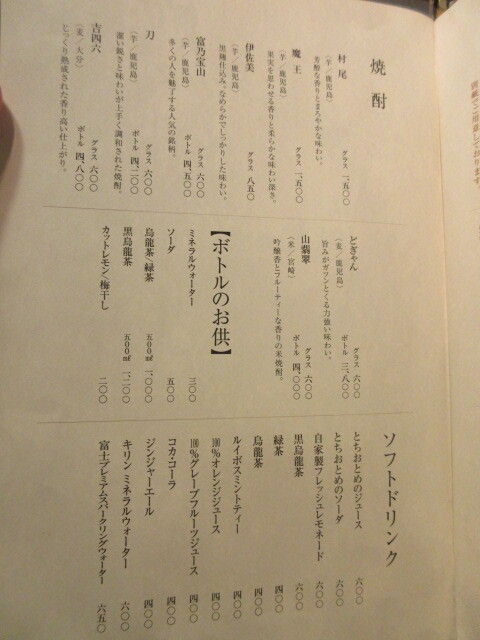 焼酎
村尾
（芋／鹿児島）
芳醇な香りとまろやかな味わい。
グラス 一、五〇〇
魔王
（芋／鹿児島）
果実を思わせる香りと柔らかな味わい深さ。
グラス 一、五〇〇
伊佐美
（芋／鹿児島）
黒麹仕込み。なめらかでしっかりした味わい。
グラス 八五〇
富乃宝山
（芋／鹿児島）
多くの人を魅了する人気の銘柄。
グラス 六〇〇
ボトル 四、五〇〇
刀
（芋／鹿児島）
潔い鋭さと味わいが上手く調和された焼酎。
グラス 六〇〇
ボトル 四、二〇〇
吉四六
（麦／大分）
じっくり熟成された香り高い仕上がり。
グラス 六〇〇
ボトル 四、八〇〇
どぎゃん
（麦／鹿児島）
旨みがガツンとくる力強い味わい。
グラス 六〇〇
ボトル 三、八〇〇
山翡翠
（米／宮崎）
吟醸香とフルーティーな香りの米焼酎。
グラス 六〇〇
ボトル 四、〇〇〇
【ボトルのお供】
ミネラルウォーター 三〇〇
ソーダ 五〇〇
烏龍茶／緑茶 五〇〇㎖ 一、〇〇〇
黒烏龍茶 五〇〇㎖ 一、二〇〇
カットレモン／梅干し 二〇〇
ソフトドリンク
とちおとめのジュース 六〇〇
とちおとめのソーダ 六〇〇
自家製フレッシュレモネード 六〇〇
黒烏龍茶 六〇〇
緑茶 四〇〇
烏龍茶 四〇〇
ルイボスミントティー 四〇〇
100％オレンジジュース 四〇〇
100％グレープフルーツジュース 四〇〇
コカ・コーラ 四〇〇
ジンジャーエール 四〇〇
キリン ミネラルウォーター 六〇〇
富士プレミアムスパークリングウォーター 六五〇